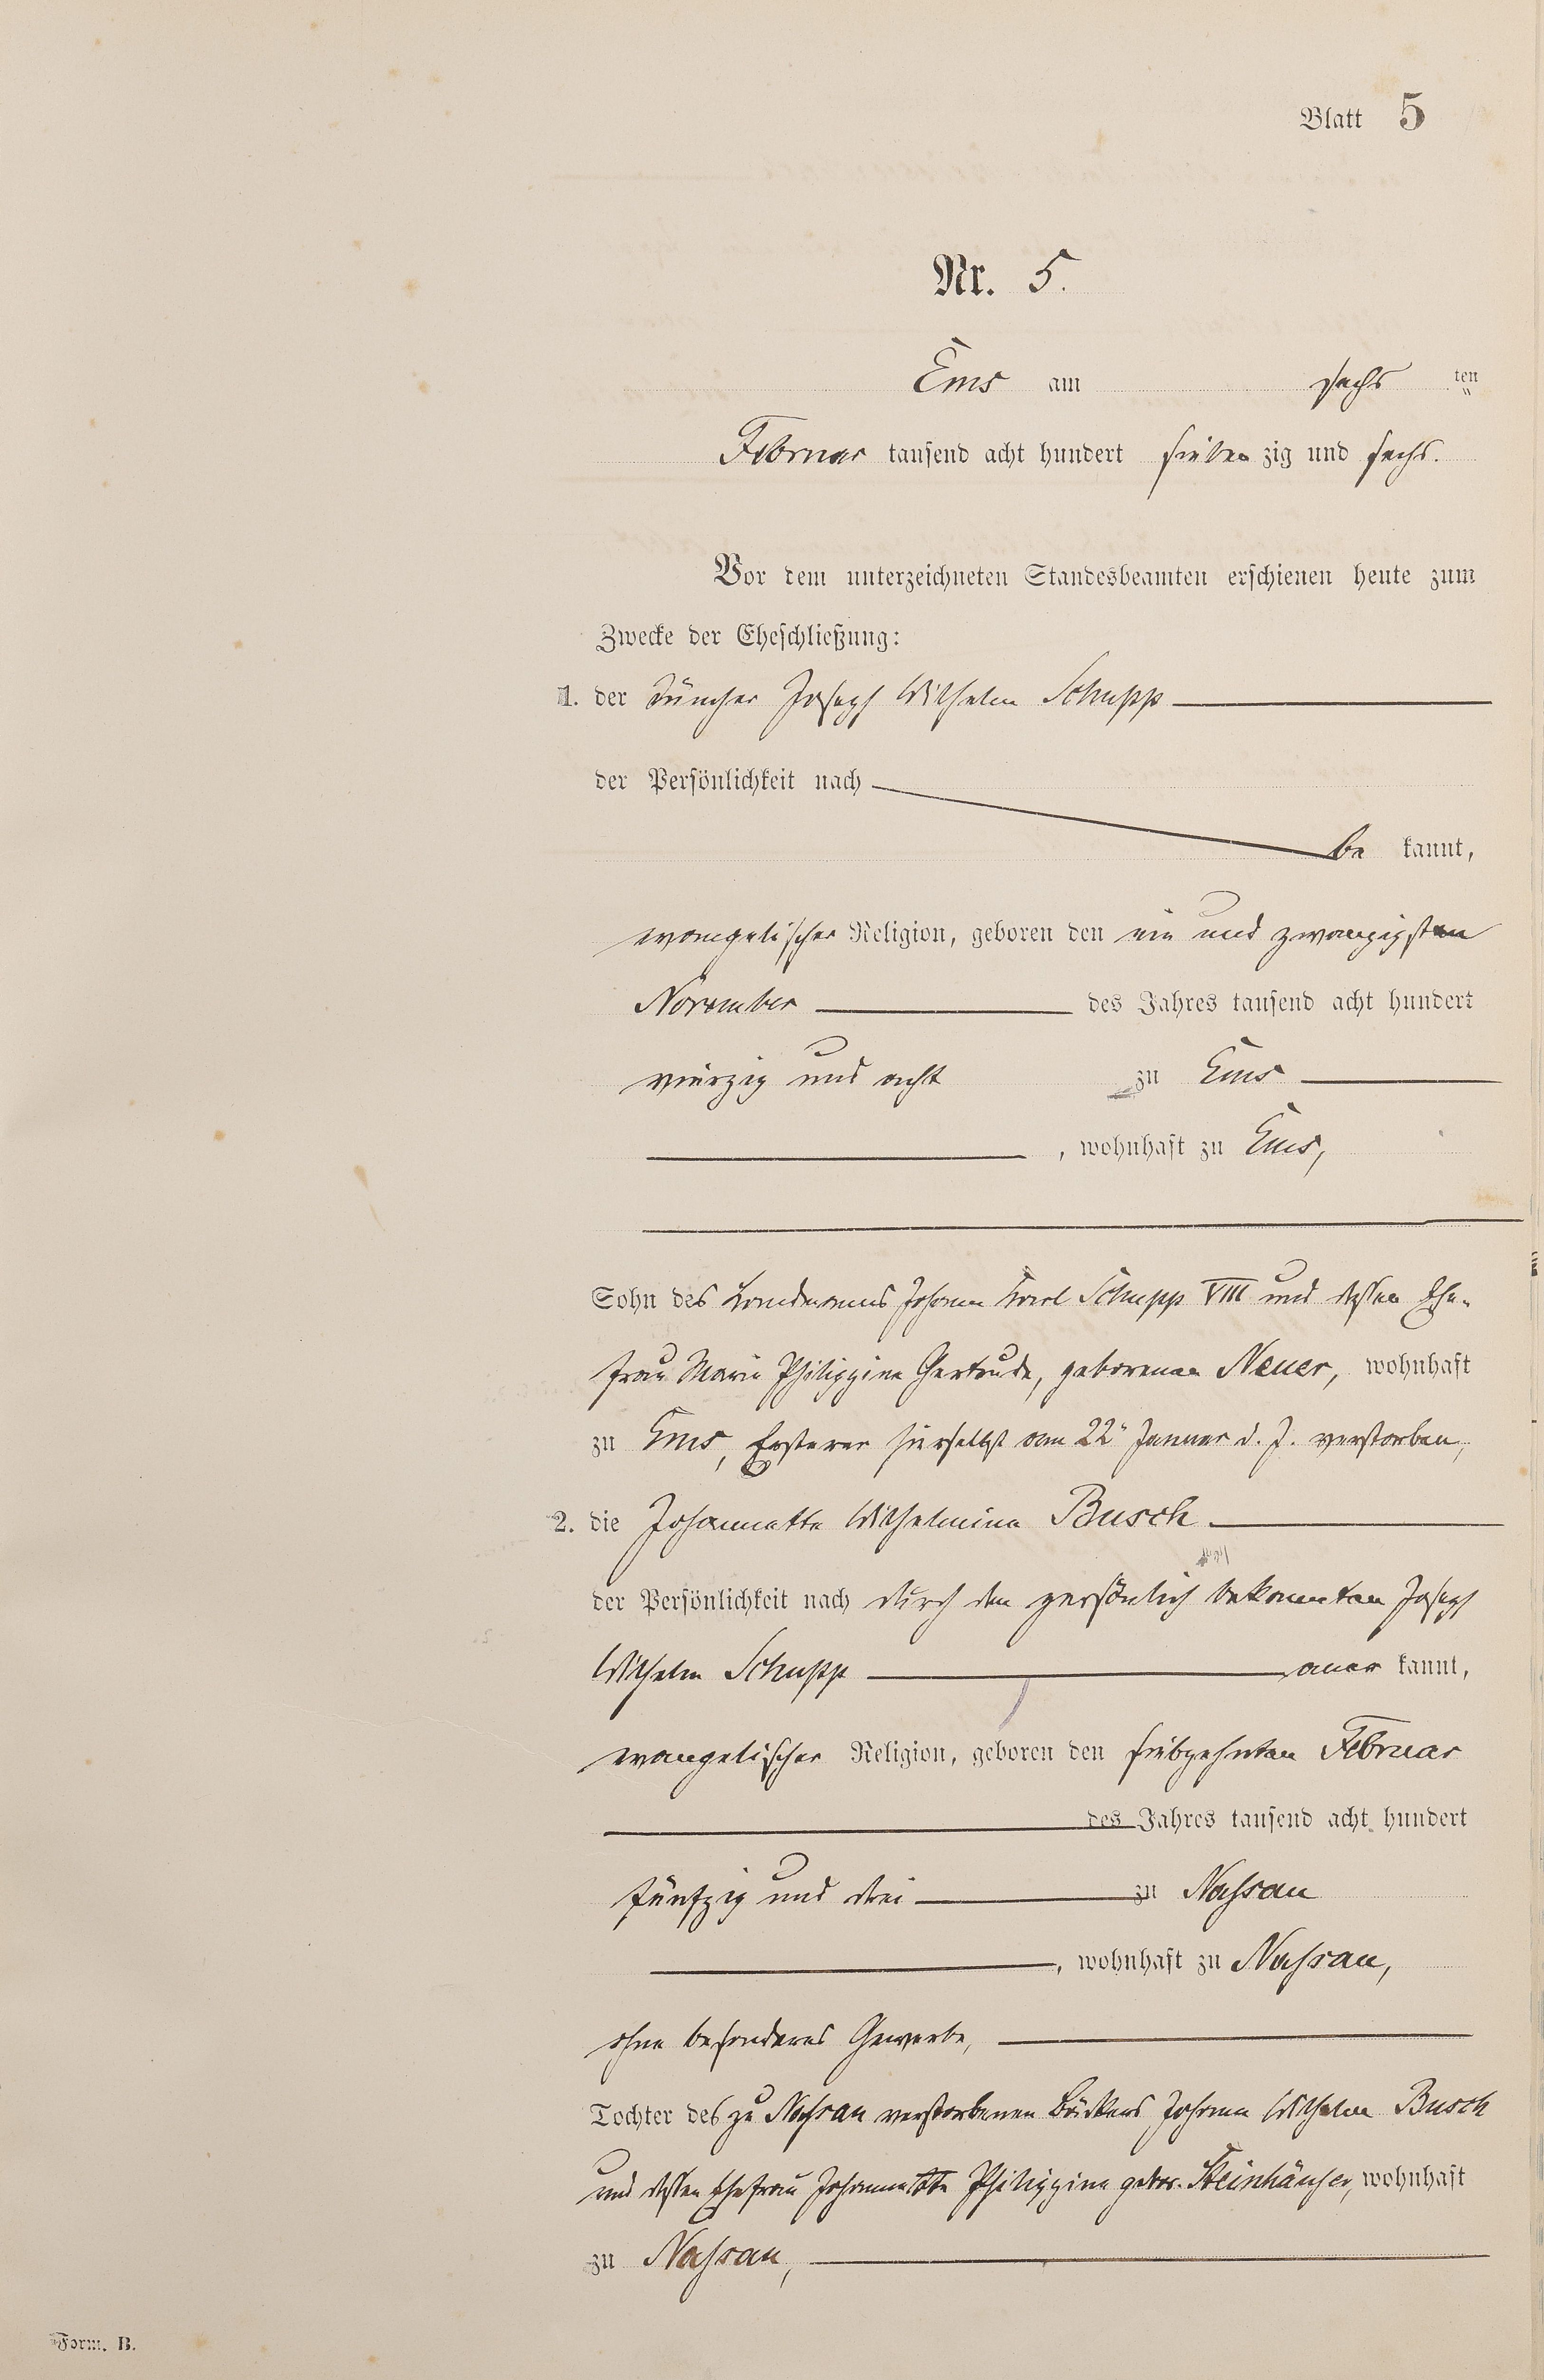 Blatt 5
Nr. 5.
Ems am sechs ten
Februar tausend acht hundert sieben zig und sechs.
Vor dem unterzeichneten Standesbeamten erschienen heute zum
Zwecke der Eheschließung:
1. der Tüncher Joseph Wilhelm Schupp
der Persönlichkeit nach
be kannt,
evangelischer Religion, geboren den ein und zwanzigsten
November des Jahres tausend acht hundert
vierzig und acht zu Ems
, wohnhaft zu Ems,
Sohn des Landmanns Johann Karl Schupp VIII und dessen Ehe-
frau Marie Philippine Gertrude, geborenen Neuer, wohnhaft
zu Ems, Ersterer hierselbst am 22ⁿ Januar d. J. verstorben,
2. die Johannette Wilhelmine Busch
der Persönlichkeit nach durch den persönlich bekannten Joseph
Wilhelm Schupp aner kannt,
evangelischer Religion, geboren den siebzehnten Februar
des Jahres tausend acht hundert
fünfzig und drei zu Nassau
, wohnhaft zu Nassau,
ohne besonderes Gewerbe,
Tochter des zu Nassau verstorbenen Bäckers Johann Wilhelm Busch
und dessen Ehefrau Johannette Philippine gebor. Steinhäuser, wohnhaft
zu Nassau,
Form. B.